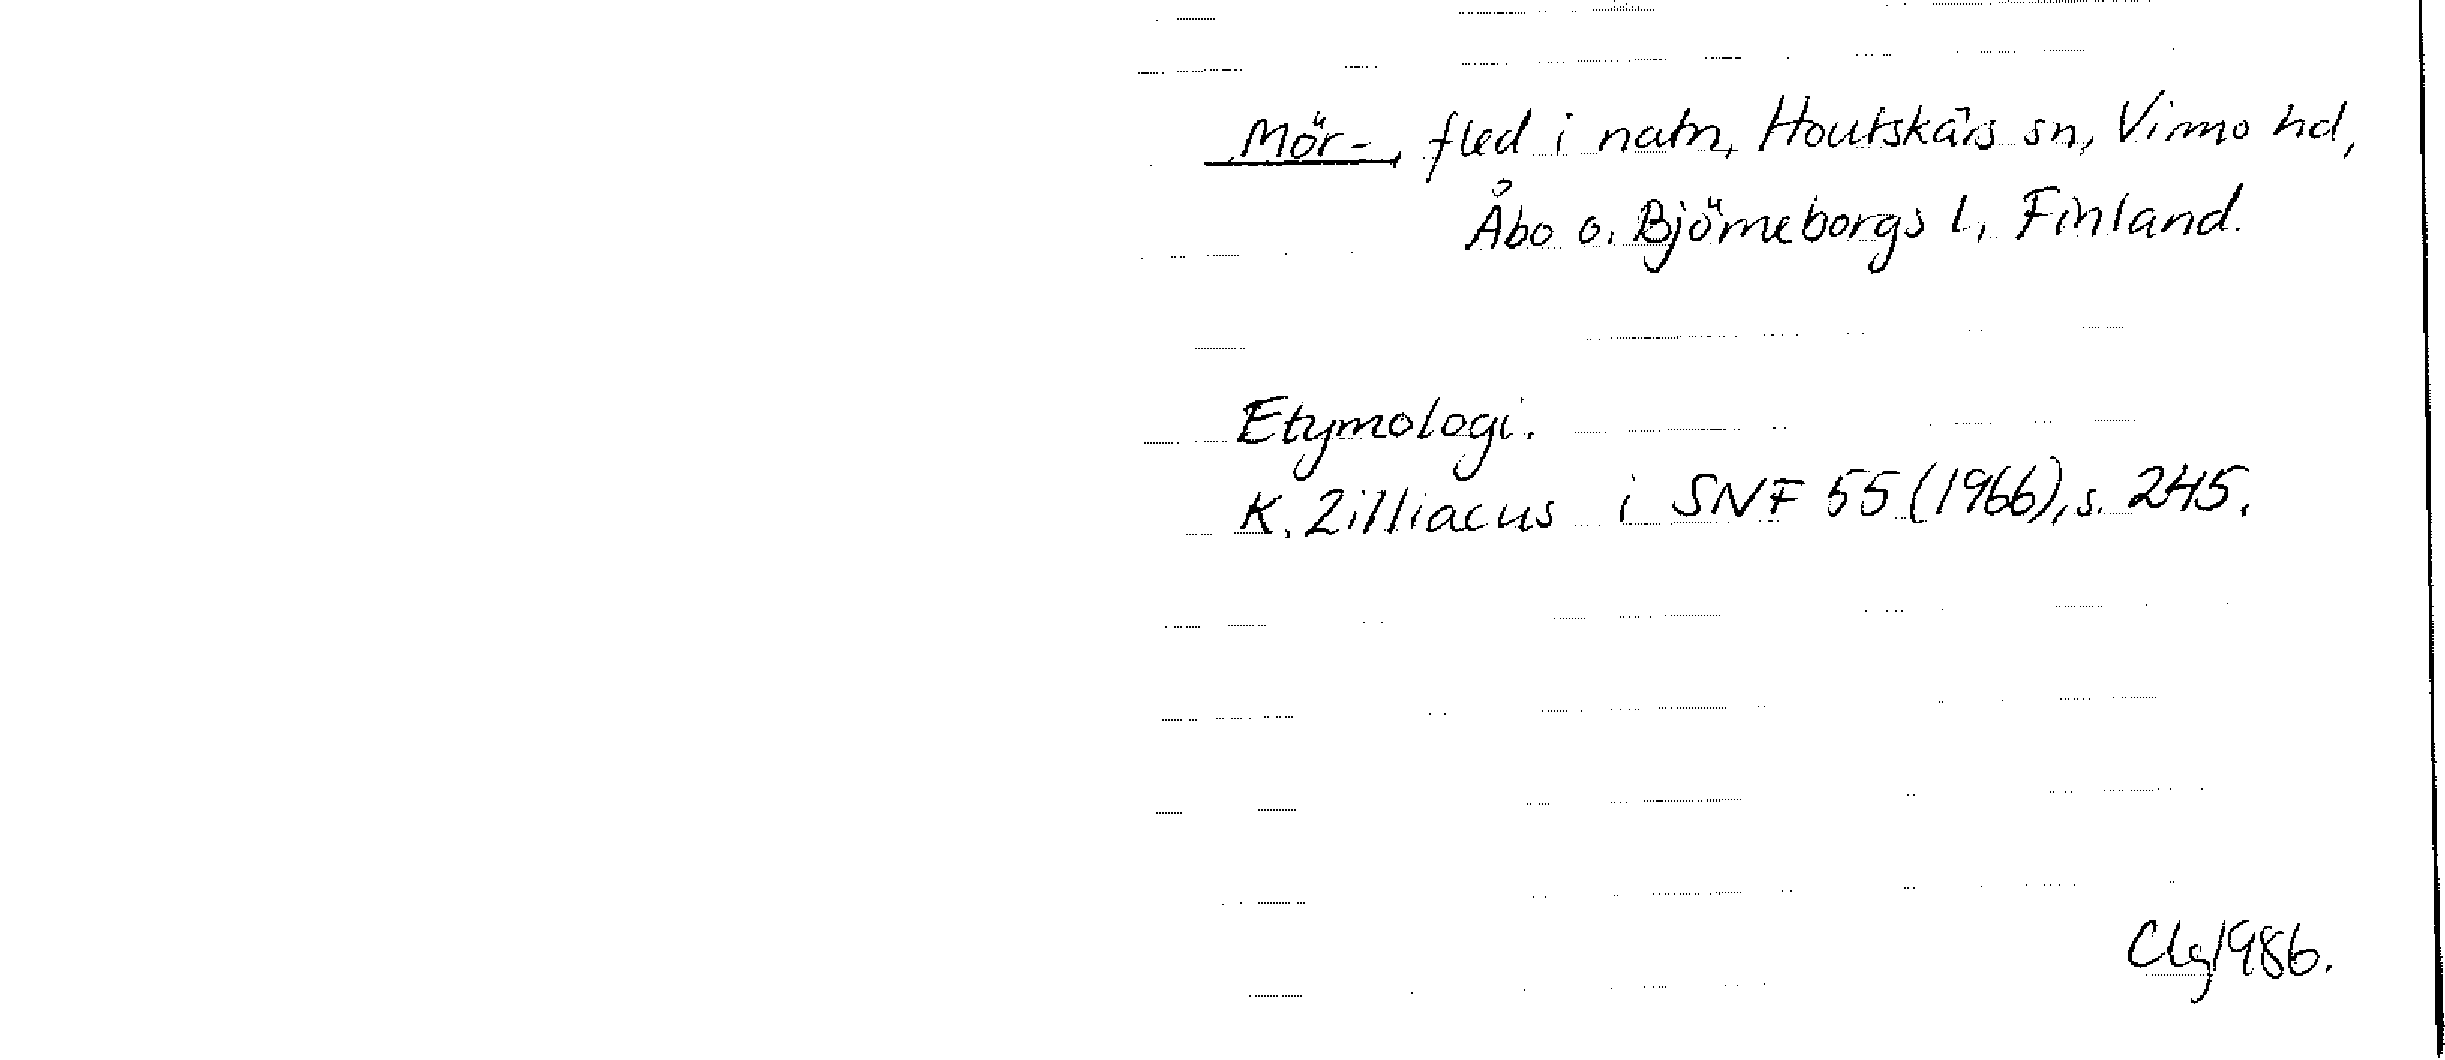 Mör-, fled i natn, Houtskärs sn, Virmo hd,
Åbo o. Björneborgs l, Finland.
Etymologi.
K. Zilliacus i SNF 55 (1966), s. 245.
Clg 1986.